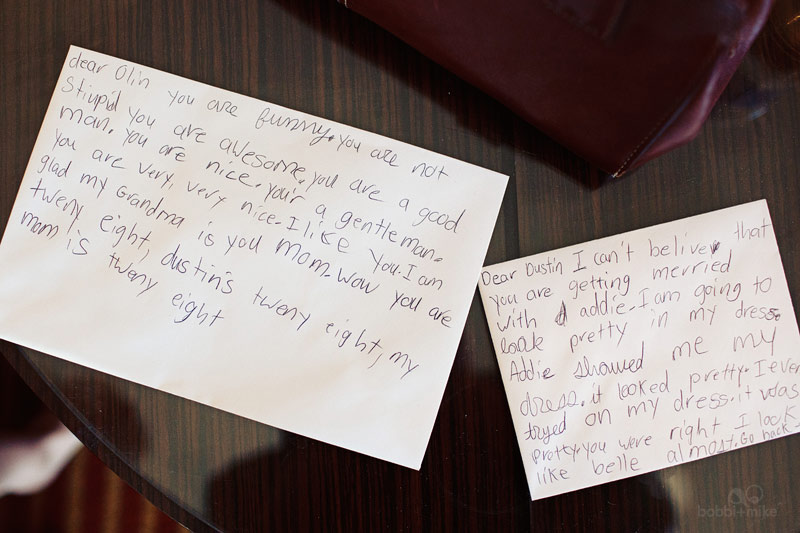 dear Olin you are funny. you are not
Stiupid you are awesome. you are a good
man. you are nice. you'r a gentleman.
you are very, very nice. I like you. I am
glad my Grandma is you mom. wow you are
tweny eight, dustin's tweny eight, my
mom is tweny eight
Dear Dustin I can't belive that
you are getting merried
with addie. I am going to
look pretty in my dress
Addie showed me my
dress. it looked pretty. I even
tryed on my dress. it was
pretty. you were right I look
like belle almost. Go back
bobbi+mike